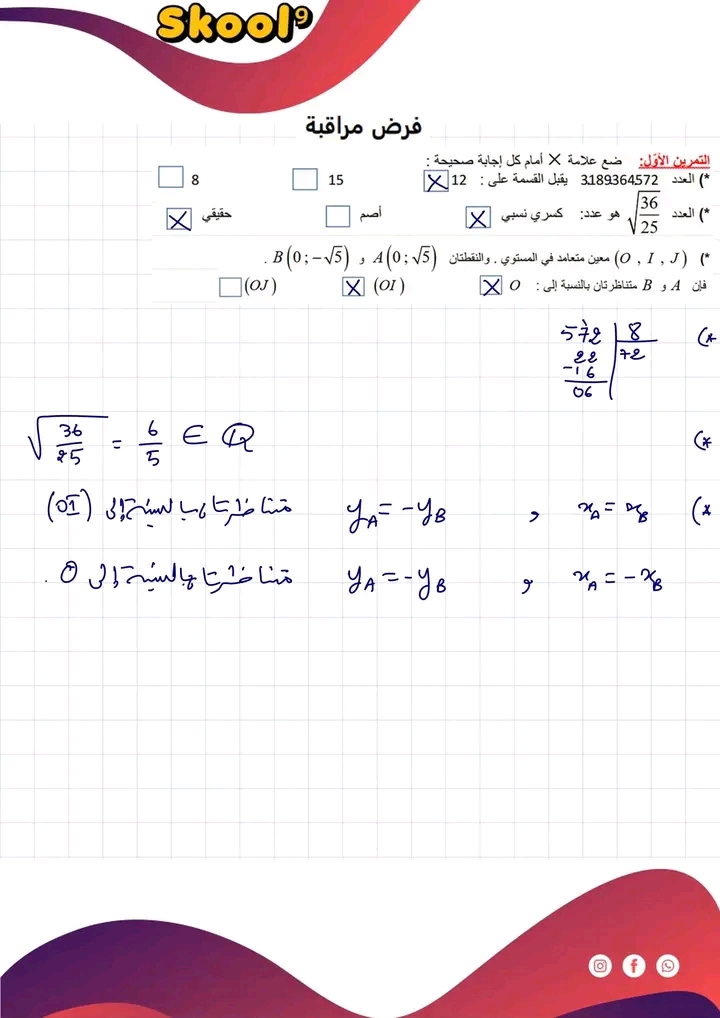 Skool9
فرض مراقبة
التمرين الأوّل: ضع علامة X أمام كل إجابة صحيحة :
*) العدد 3189364572 يقبل القسمة على : 12 X 15 8
*) العدد √(36/25) هو عدد: كسري نسبي X أصم حقيقي X
*) (O , I , J) معين متعامد في المستوي . والنقطتان A(0;√5) و B(0;−√5) .
فإن A و B متناظرتان بالنسبة إلى : O X (OI) X (OJ)
*) 572 | 8
22 | 72
-16
06
*) √(36/25) = 6/5 ∈ Q
*) x_A = x_B , y_A = -y_B متناظرتان بالنسبة إلى (OI)
x_A = -x_B , y_A = -y_B متناظرتان بالنسبة إلى O .